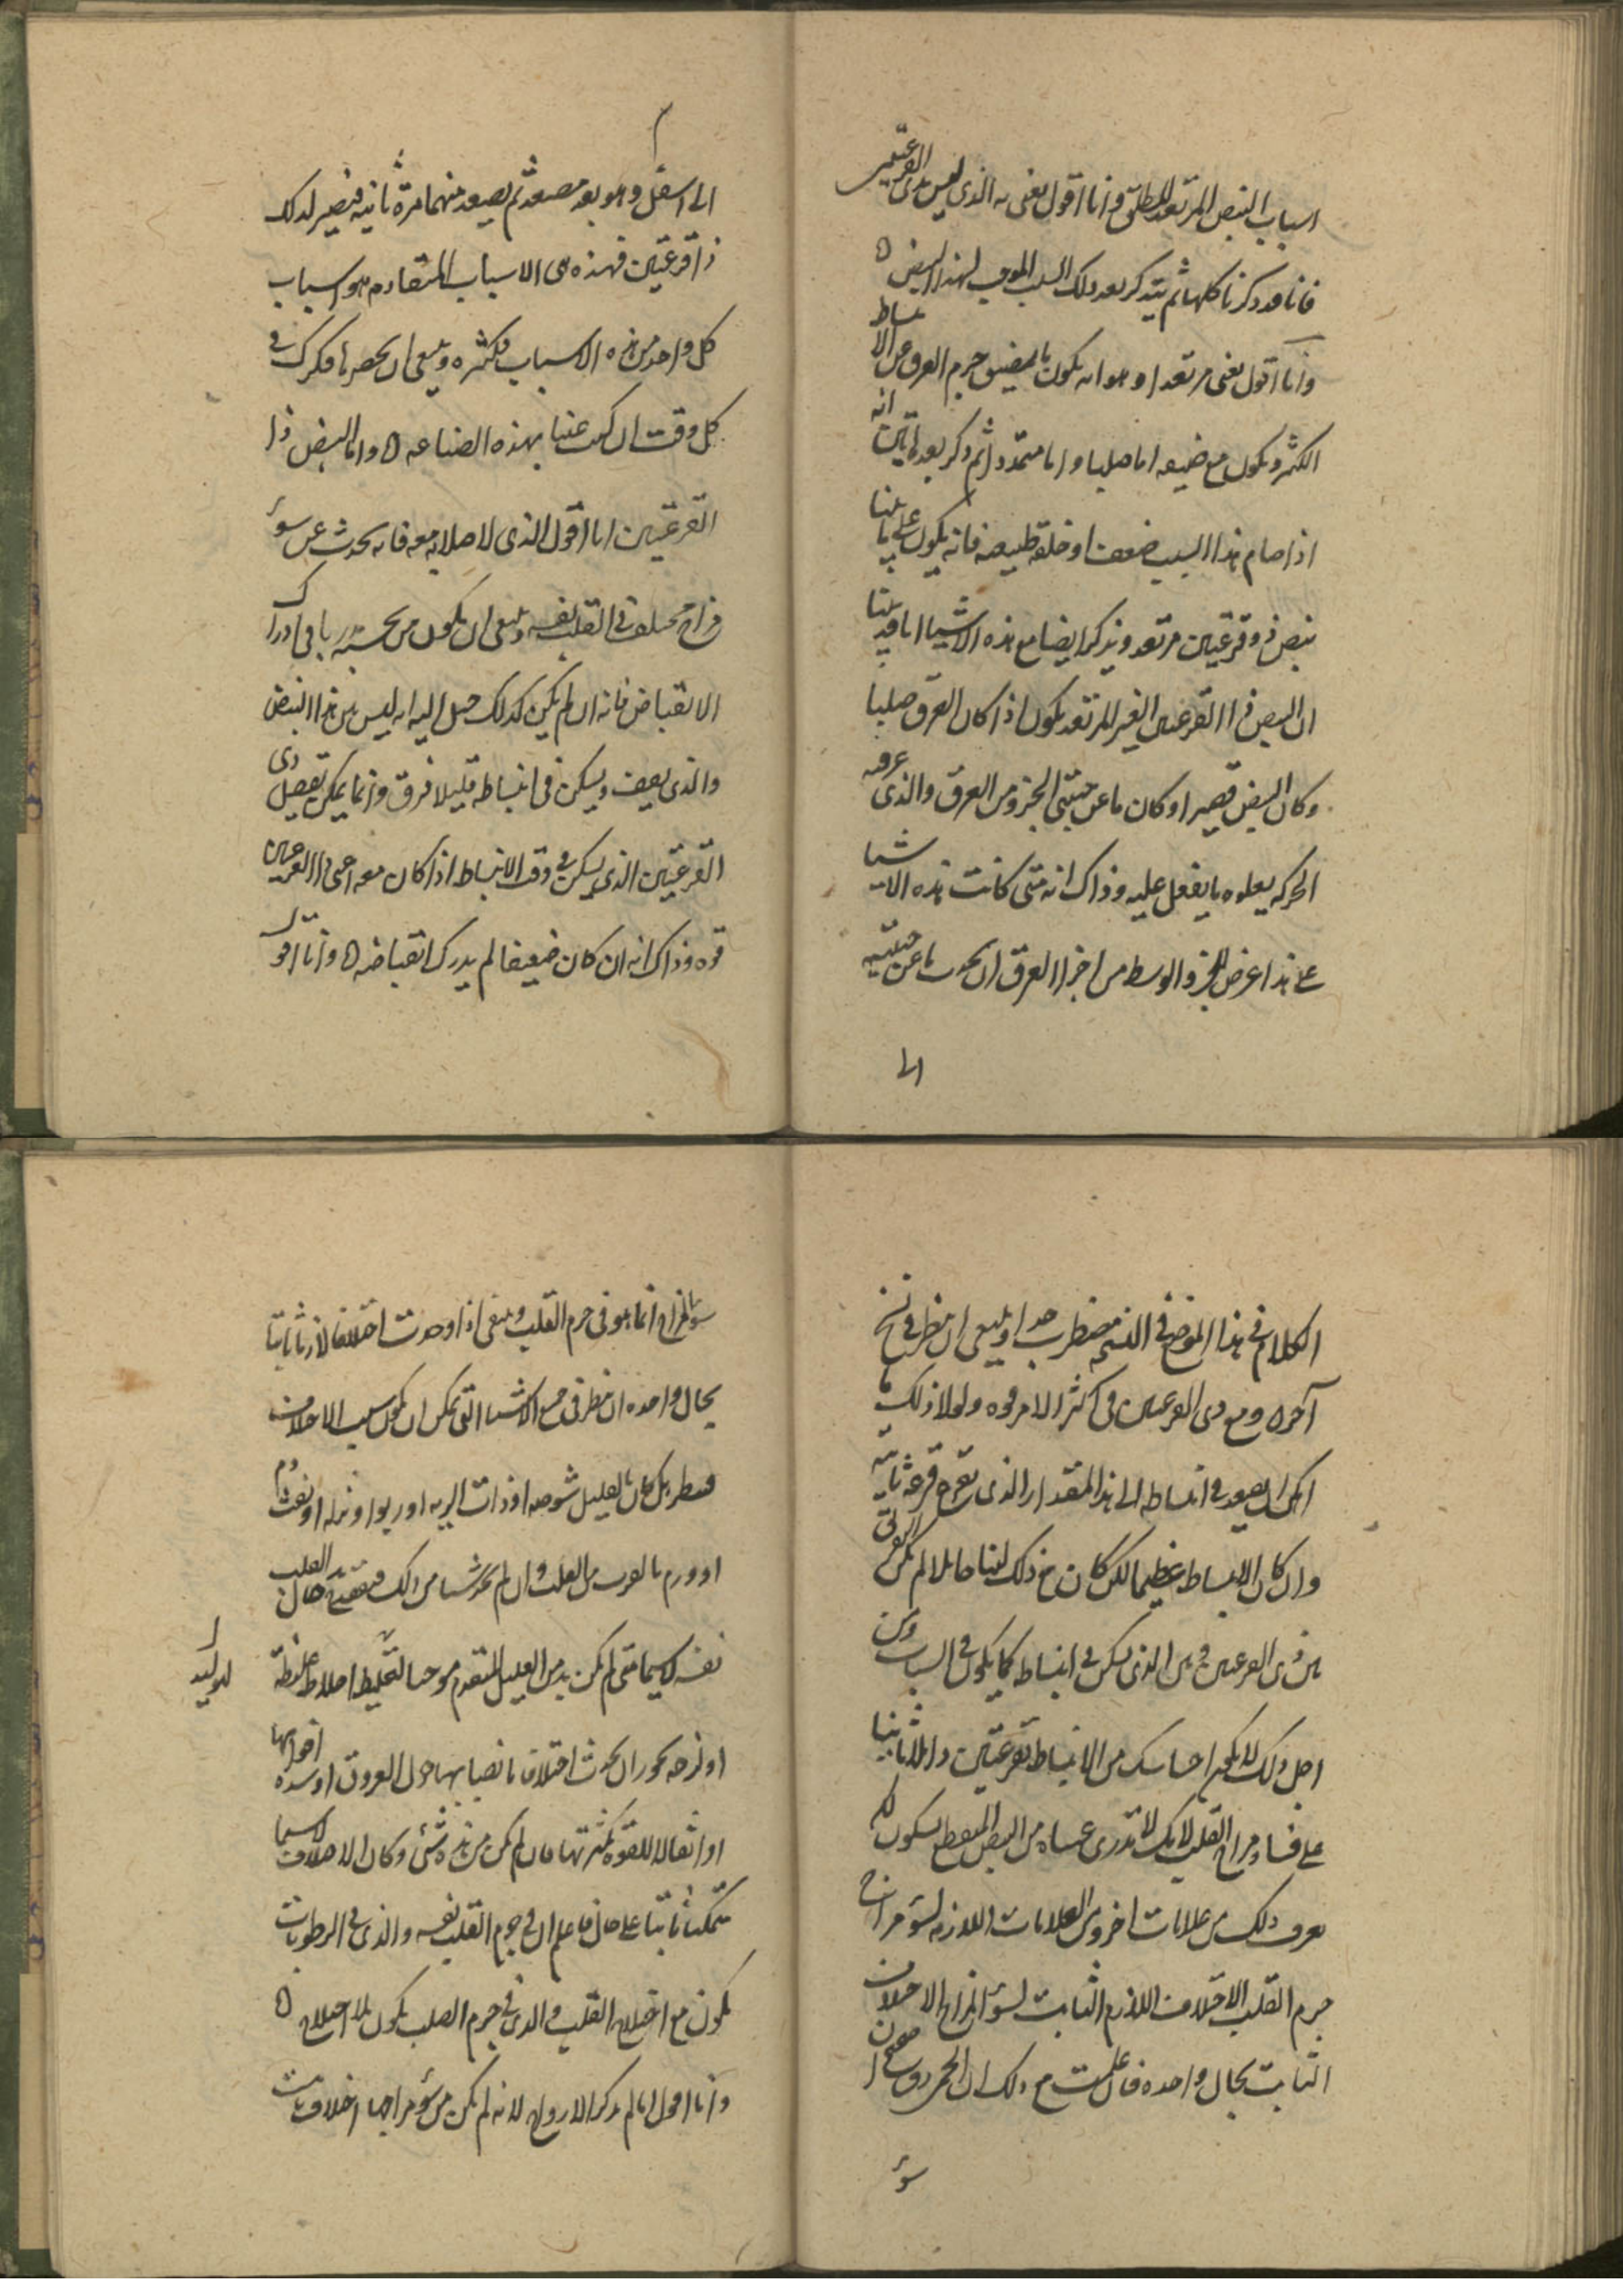 اسباب النبض المرتعد المطلق وانا اقول يعنى به الذى ليس بذى القرعتين
فانا قد ذكرنا كلها ثم يتذكر بعد ذلك السبب الموجب لهذا النبض ه
وانا اقول يعنى مرتعدا وهو انه يكون بالمضيق جرم العرق من الانبساط
اكثر ويكون مع ضيقه اما صلبا واما متمددا ثم ذكر بعد هاتين انه
اذا صام هذا السبب ضعف او خلقة طبيعية فانه يكون على ما بينا
نبض ذو قرعتين مرتعد ويذكر ايضا مع هذه الاشيا انا قد بينا
ان النبض ذا القرعتين الغير المرتعد يكون اذا كان العرق صلبا
وكان النبض قصيرا وكان ما عن جنبتى الجزو من العرق والذى عرفه
الحركة يعلوه ما يفعل عليه وذاك انه متى كانت هذه الاشيا
على هذا عرض للجزو الوسط من اجزا العرق ان يحدث ما عن جنبتيه
الى
الى اسفل وهو بعد مصعد ثم يصعد منهما مرة ثانية فيصير لذلك
ذا قرعتين فهذه هى الاسباب المتقادمه واسباب
كل واحد من هذه الاسباب فكثيره وينبغى ان يحصرها فكرك فى
كل وقت ان كنت عنيا بهذه الصناعه ه واما النبض ذا
القرعتين انا اقول الذى لا صلابه معه فانه يحدث عن سوء
مزاج مختلف فى القلب نفسه وينبغى ان يكون من يحسبه دربا فى ادراك
الانقباض فانه ان لم يكن كذلك خيل اليه انه ليس بين هذا النبض
والذى يقف ويسكن فى انبساطه قليلا فرق وانما يمكن تفصيل ذى
القرعتين الذى يسكن فى وقت الانبساط اذا كان معه اعنى ذا القرعتين
قوه وذاك انه ان كان ضعيفا لم يدرك انقباضه ه وانا اقول
الكلام فى هذا الموضع فى النسخه مضطرب جدا وينبغى ان ينظر فى نسخ
آخر ه ومع ذى القرعتين فى اكثر الامر قوه ولولا ذلك ما
امكن ان يصعد فى انبساطه الى هذا المقدار الذى تقرع قرعه ثانيه
وان كان الانبساط عظيما لكن كان مع ذلك لينا خاملا لم يكن الفرق
بين ذى القرعتين وبين الذى يسكن فى انبساطه كما يكون فى السبات ومن
اجل ذلك لا يكون احساسك من الانبساط بقرعتين دليلا ثابتا
على فساد مزاج القلب لانك لا تدرى عساه من النبض المنقطع بسكون لكن
تعرف ذلك من علامات اخر ومن العلامات اللازمه لسوء مزاج
جرم القلب الاختلاف اللازم الثابت لسوء المزاج الاختلاف
الثابت بحال واحده فان علمت مع ذلك ان الحجر دوى صحيحا
سوء
سوء المزاج انما هو فى جرم القلب وينبغى اذا وجدت اختلافا لازما ثابتا
بحال واحده ان ينظر فى جميع الاشيا التى يمكن ان يكون سبب الاختلاف
فينظر هل كان بالعليل شوصه او ذات الريه او ربو او نزله او نفث دم
او ورم بالقرب من القلب وان لم يجد شيا من ذلك فتفقد حال القلب
نفسه لا سيما متى لم يكن تدبير العليل المتقدم موجبا لتخليط اخلاط غليظة
لتوليد
او لزجه يجوز ان يحدث اختلاف بانضبابها حول العروق او سده افواهها
او اثقالا للقوه بكثرتها فان لم يكن من هذه شى وكان الاختلاف لا سيما
متمكنا ثابتا على حال فاعلم ان فى جرم القلب نفسه والذى فى الرطوبات
يكون مع اختلاج القلب والذى فى جرم القلب يكون بلا اختلاج ه
وانا اقول انا لم يذكر الارواح لانه لم يكن من سوء مزاجها اختلاف ثابت